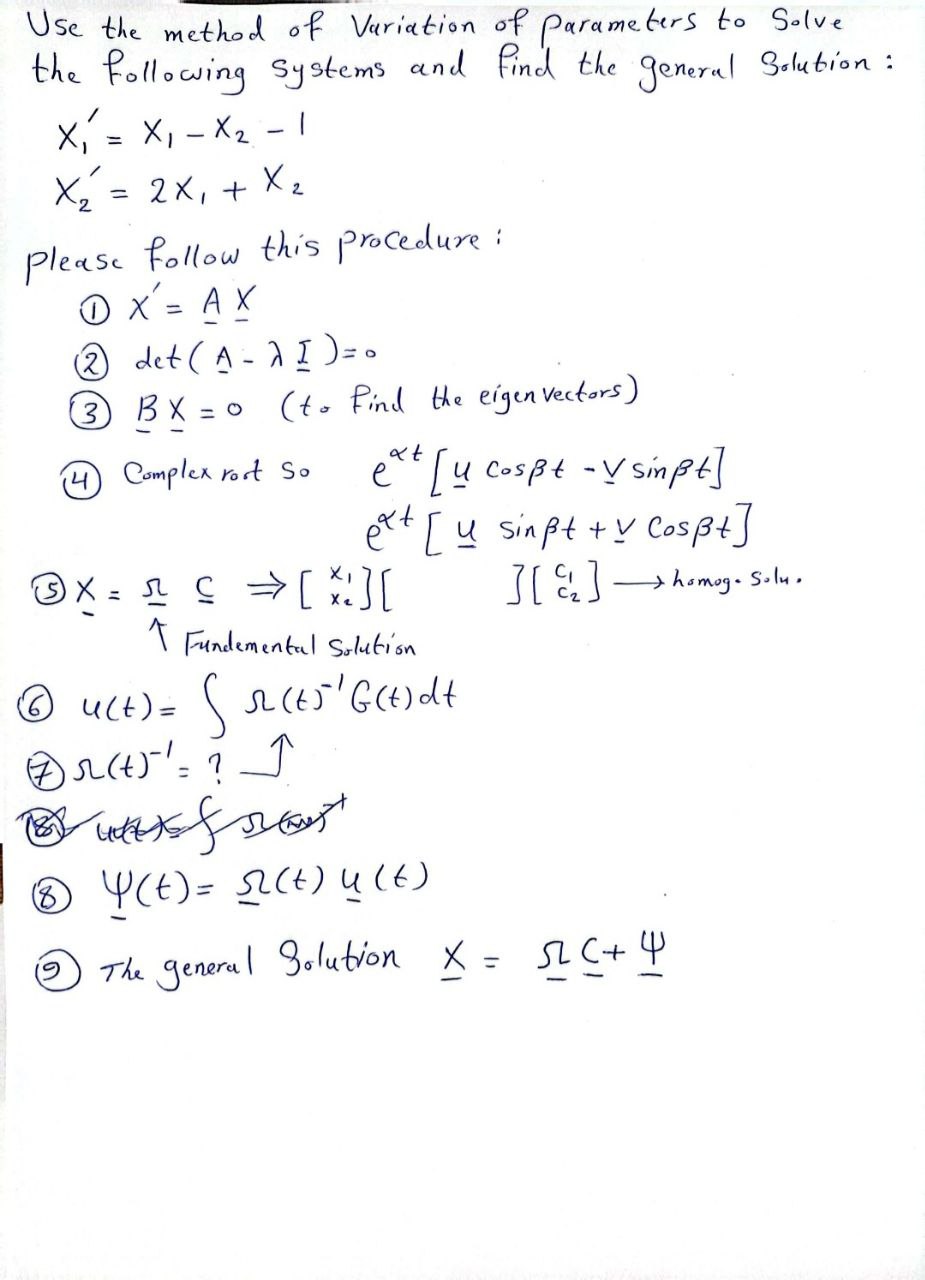 Use the method of Variation of parameters to Solve
the following Systems and find the general Solution :
X₁′ = X₁ − X₂ − 1
X₂′ = 2X₁ + X₂
please follow this procedure :
① X′ = A X
② det ( A − λ I ) = 0
③ B X = 0 (to find the eigen vectors)
④ Complex root So e^αt [ u cosβt − v sinβt ]
e^αt [ u sinβt + v Cosβt ]
⑤ X = Ω C ⇒ [ X₁ X₂ ] [ ] [ C₁ C₂ ] → homog. Solu.
↑ Fundemental Solution
⑥ u(t) = ∫ Ω(t)⁻¹ G(t) dt
⑦ Ω(t)⁻¹ = ? ↑
⑧ Ψ(t) = Ω(t) u(t)
⑨ The general Solution X = Ω C + Ψ